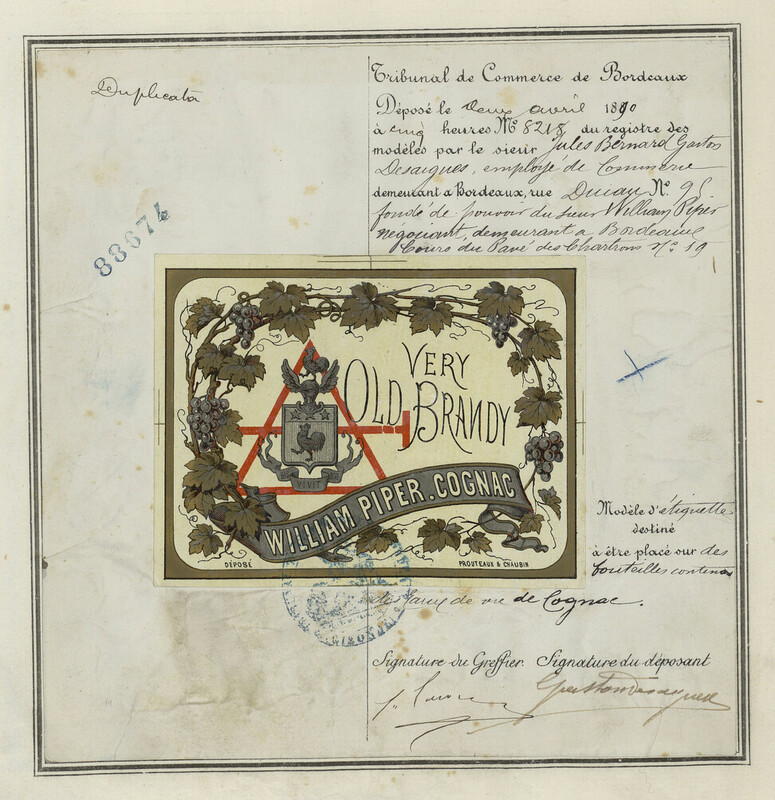 Duplicata
Tribunal de Commerce de Bordeaux
Déposé le deux avril 1890
à cinq heures No 8218 du registre des
modèles par le sieur Jules Bernard Gaston
Desaigues, employé de Commerce
demeurant à Bordeaux, rue No 95
fondé de pouvoir du sieur William Piper
négociant, demeurant à Bordeaux
Cours du Pavé des Chartrons no 19
88674
VERY
OLD BRANDY
VIVIT
WILLIAM PIPER. COGNAC
DÉPOSÉ
PROUTEAUX & CHAUBIN
Modèle d'étiquette
destiné
à être placé sur des
bouteilles contenant
des Eaux de vie de Cognac.
Signature du Greffier. Signature du déposant